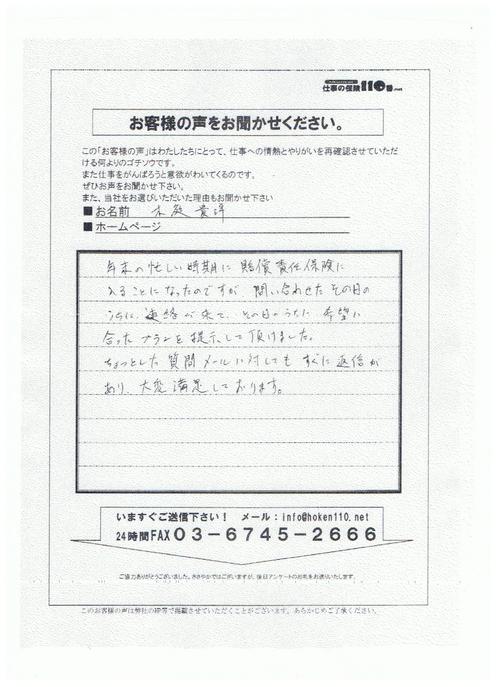 仕事の保険110番.net
お客様の声をお聞かせください。
この「お客様の声」はわたしたちにとって、仕事への情熱とやりがいを再確認させていただ
ける何よりのゴチソウです。
また仕事をがんばろうと意欲がわいてくるのです。
ぜひお声をお聞かせ下さい。
また、当社をお選びいただいた理由もお聞かせ下さい
■お名前 木庭 貴
■ホームページ
年末の忙しい時期に賠償責任保険に
入ることになったのですが、問い合わせたその日の
うちに、連絡が来て、その日のうちに希望に
合ったプランを提示して頂けました。
ちょっとした質問メールに対してもすぐに返信が
あり、大変満足しております。
いますぐご送信下さい! メール:info@hoken110.net
24時間FAX 03-6745-2666
ご協力ありがとうございました。ささやかではございますが、後日アンケートのお礼をお送りいたします。
このお客様の声は弊社のHP等で掲載させていただくことがございます。あらかじめご了承ください。